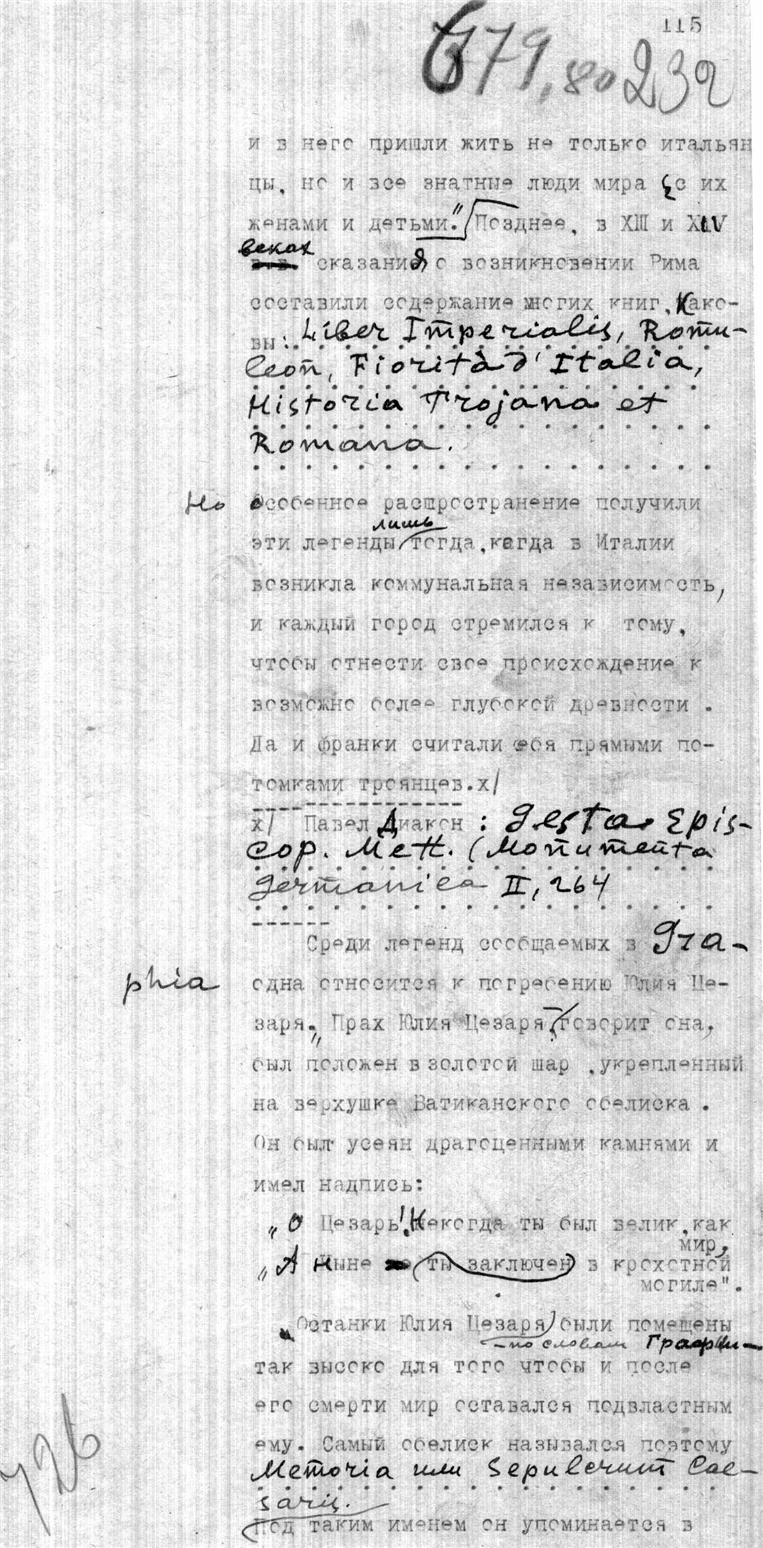 115
679,80 232
и в него пришли жить не только итальян
цы, но и все знатные люди мира с их
женами и детьми." Позднее, в XIII и XIV
веках сказания о возникновении Рима
составили содержание многих книг. Како-
вы: Liber Imperialis, Romu-
leon, Fiorità d'Italia,
Historia Trojana et
Romana.
Но особенное распространение получили
эти легенды лишь тогда, когда в Италии
возникла коммунальная независимость,
и каждый город стремился к тому,
чтобы отнести свое происхождение к
возможно более глубокой древности.
Да и франки считали себя прямыми по-
томками троянцев.х/
х/ Павел Диакон: Gesta Epis-
cop. Mett. (Monumenta
Germanica II, 264
Среди легенд сообщаемых в Gra-
phia одна относится к погребению Юлия Це-
заря. "Прах Юлия Цезаря, - говорит она,
был положен в золотой шар, укрепленный
на верхушке Ватиканского обелиска.
Он был усеян драгоценными камнями и
имел надпись:
"О Цезарь! Некогда ты был велик, как
мир,
"А ныне ты заключен в крохотной
могиле".
"Останки Юлия Цезаря были помещены
- по словам Графи-
так высоко для того чтобы и после
его смерти мир оставался подвластным
ему. Самый обелиск назывался поэтому
Memoria или Sepulcrum Cae-
saris.
Под таким именем он упоминается в
726